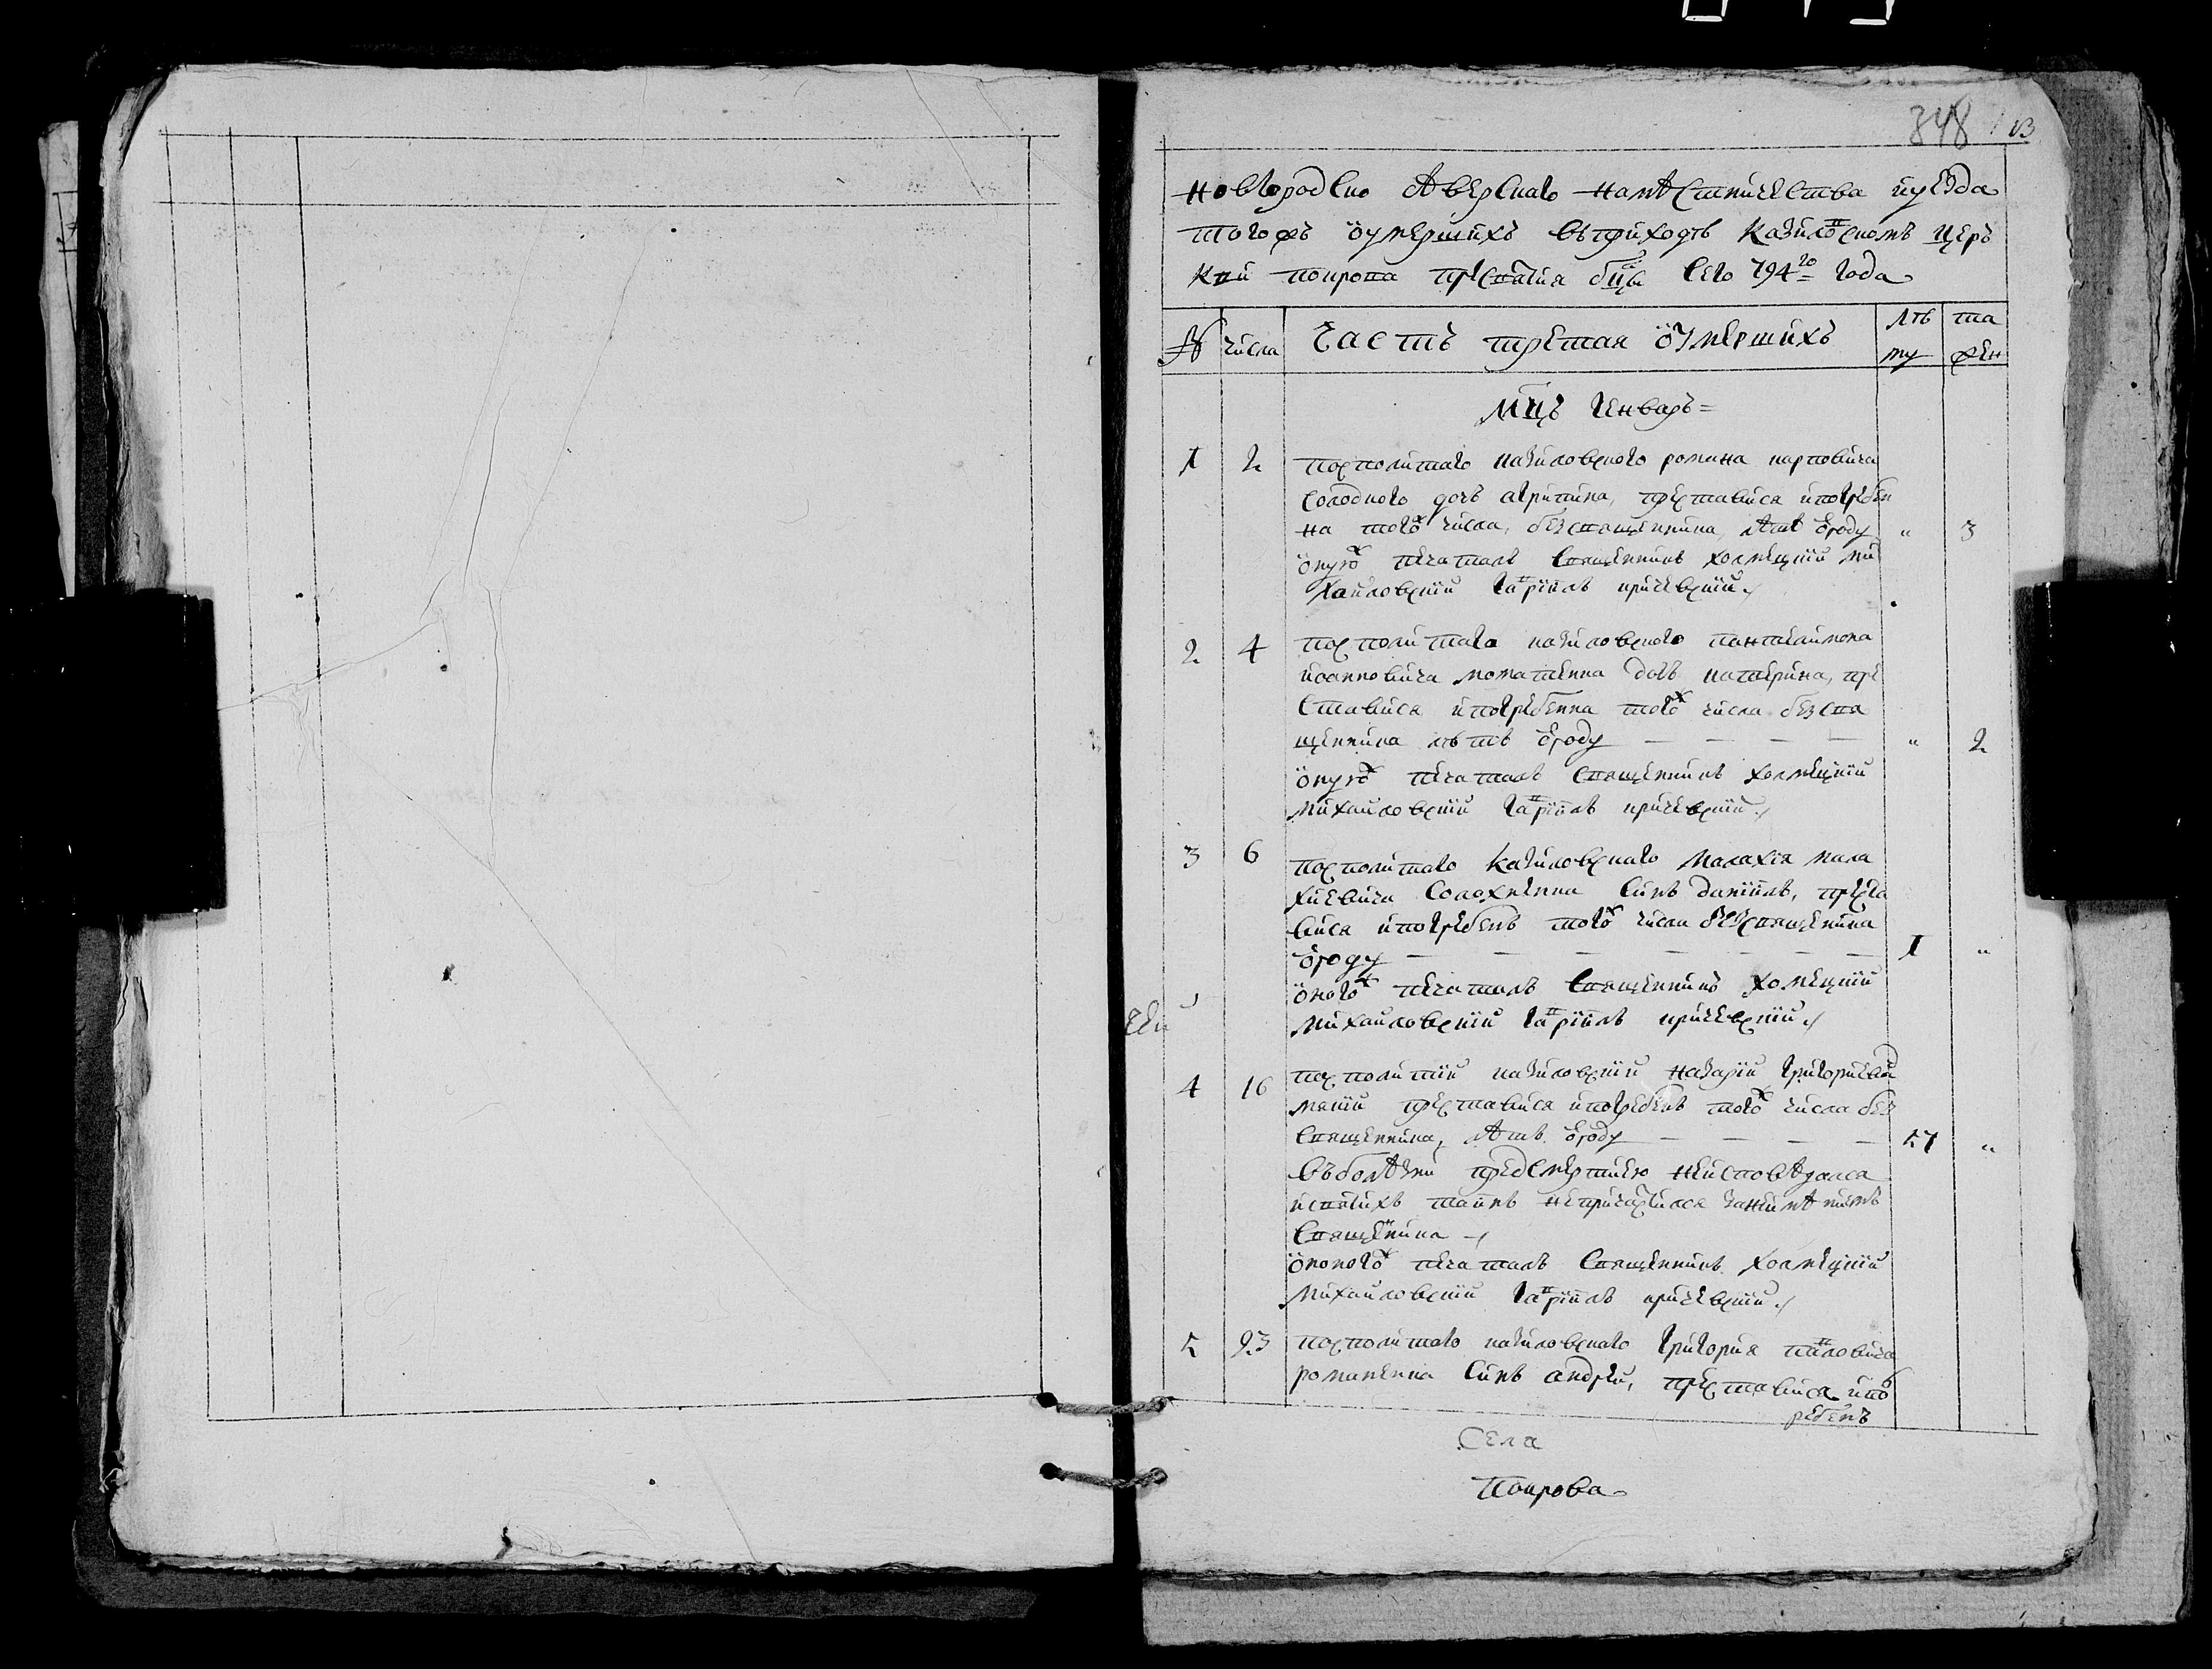 348
13
новгородско сѣверскаго намѣстничества иуезда
тогожъ оумершихъ въприходѣ казиловскомъ цер
кви покрова престия бци сего 794го года
№
числа
Часть третая оумершихъ
лѣ та
му жен
Мцъ Генваръ
1 2 посполитаго казиловского романа карповича
солодкого дочъ агрипина, преставися ипогребен
на тогож числа, безсвященника, лѣтъ ѿроду " 3
ѿнуюж печаталъ священникъ холмецкїй ми
хайловскїй гаврїилъ кричевскїй
2 4 посполитаго казиловского пантилимона
иоанновича дочъ катерина, пре
ставися ипогребенна тогож числа безсвя
щенника лѣтъ ѿроду " 2
ѿнуюж печаталъ священникъ холмецкїй
михайловскїй гаврїилъ кричевскїй
3 6 посполитаго казиловскаго малахїя мала
хиевича синъ данїилъ, преста
вися ипогребенъ тогож числа безсвященника
ѿроду 1 "
ѿногож печаталъ священникъ холмецкїй
михайловскїй гаврїилъ кричевскїй
4 16 посполитий казиловскїй назарїй григориеви
преставися ипогребенъ тогож числа без
священника, лѣтъ ѿроду 57 "
въболѣзни предсмертною неисповѣдался
исвятихъ таинъ непричастился занеимѣниемъ
священника
ѿногож печаталъ священникъ холмецкїй
михайловскїй гаврїилъ кричевскїй
5 23 посполитаго казиловскаго григория павловича
романенка синъ андрей, преставися ипог
ребенъ
Села
Покрова